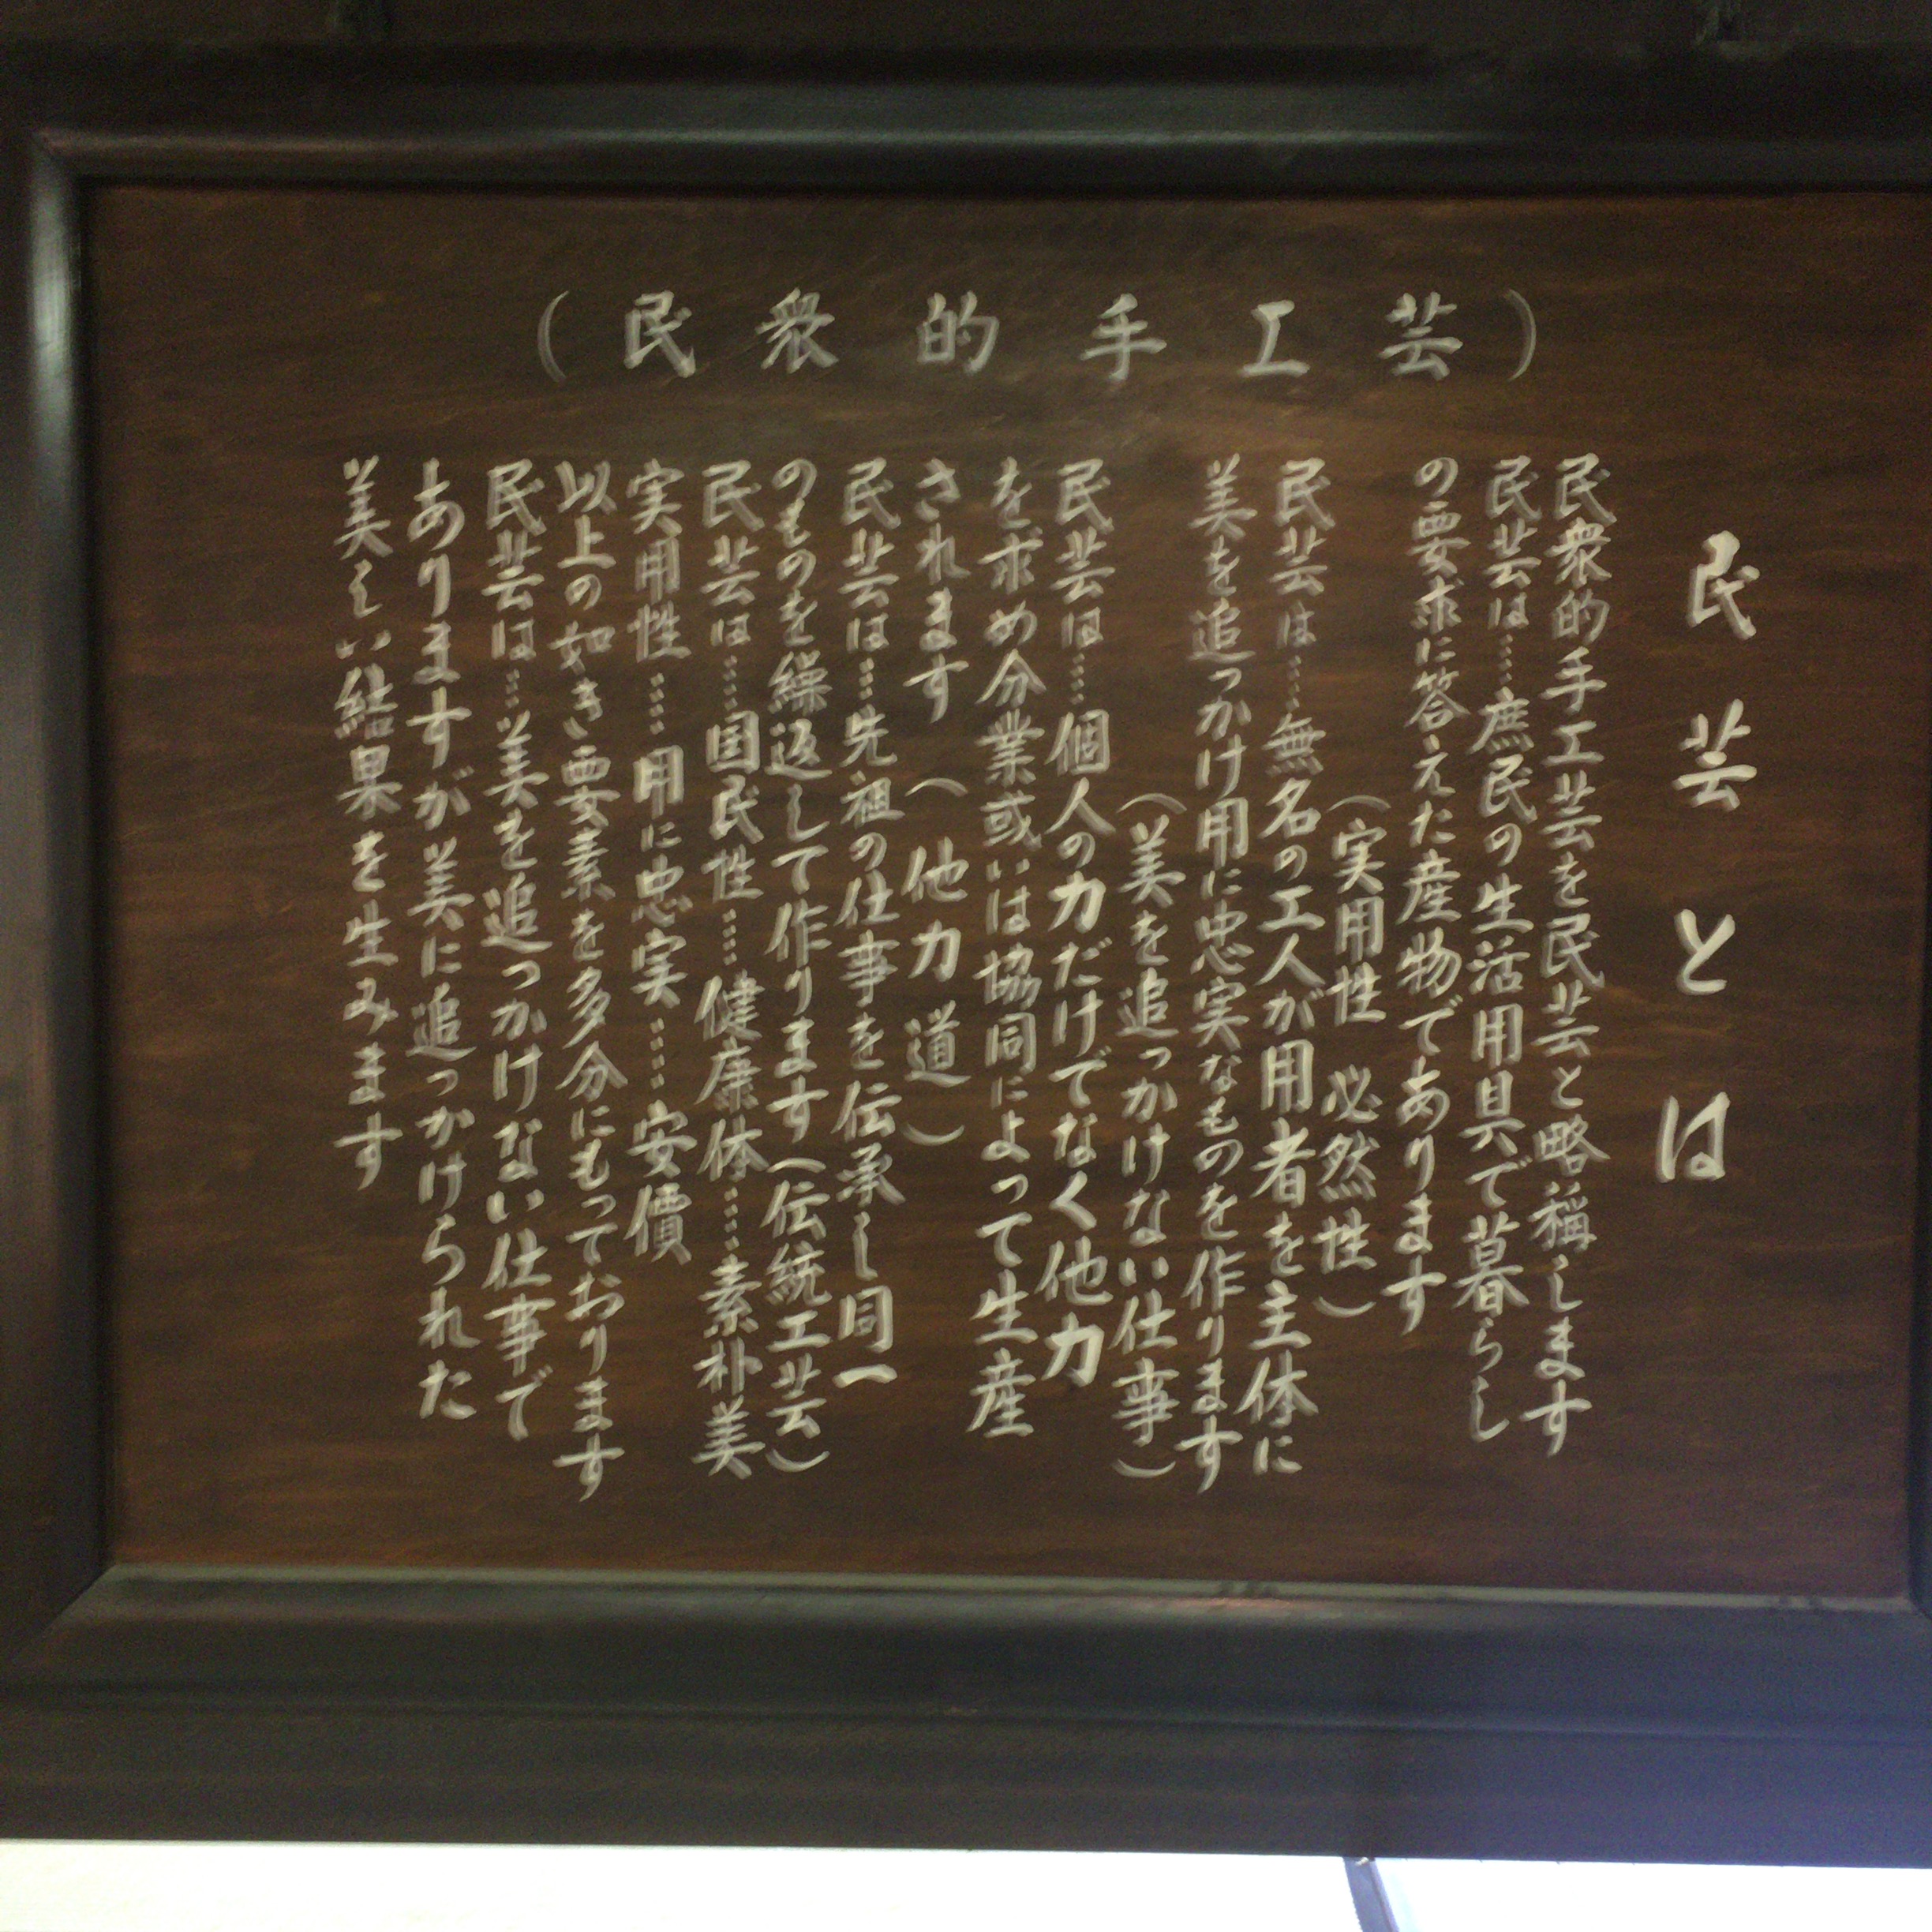 民芸とは
（民衆的手工芸）
民衆的手工芸を民芸と略稱します
民芸は……庶民の生活用具で暮らし
の要求に答えた産物であります
（実用性　必然性）
民芸は……無名の工人が用者を主体に
美を追っかけ用に忠実なものを作ります
（美を追っかけない仕事）
民芸は……個人の力だけでなく他力
を求め分業或いは協同によって生産
されます　（他力道）
民芸は……先祖の仕事を伝承し同一
のものを繰返して作ります（伝統工芸）
民芸は……国民性……健康体……素朴美
実用性……用に忠実……安價
以上の如き要素を多分にもっております
民芸は……美を追っかけない仕事で
ありますが美に追っかけられた
美しい結果を生みます